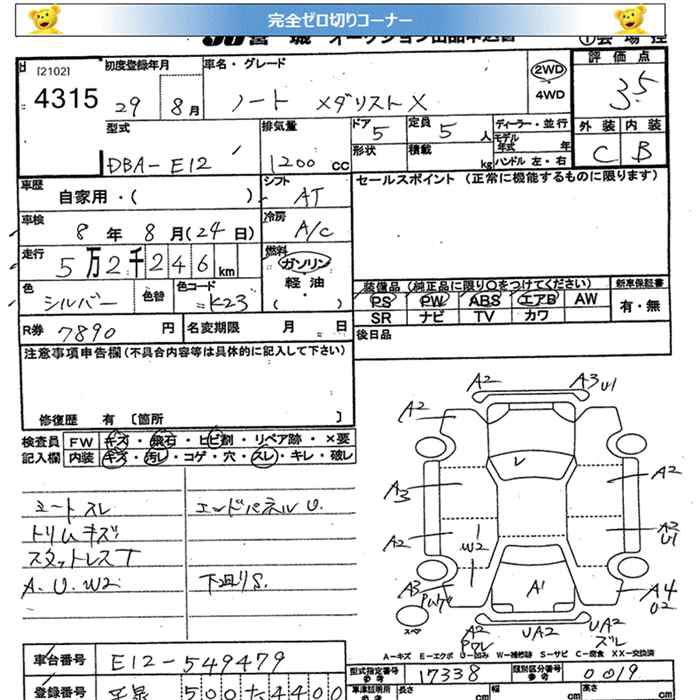 完全ゼロ切りコーナー
JU 宮城 オークション出品申込書 ①会場控
[2102] 4315
初度登録年月 29 8月
車名・グレード ノート メダリストX
2WD 4WD
評価点 3.5
外装 内装
C B
型式 DBA-E12
排気量 1200cc
ドア 5 定員 5人
形状 積載 kg
ディーラー・並行
モデル年式 年
ハンドル 左・右
車歴 自家用・( )
シフト AT
セールスポイント (正常に機能するものに限ります)
車検 8年8月(24日)
冷房 A/C
走行 5万2千246km
燃料 ガソリン 軽油 ( )
色 シルバー 色替 色コード K23
装備品 (純正品に限り○をつけてください) 新車保証書
PS PW ABS エアB AW 有・無
SR ナビ TV カワ
R券 7890円 名変期限 月 日
後日品
注意事項申告欄 (不具合内容等は具体的に記入して下さい)
修復歴 有 〔箇所 〕
検査員記入欄
FW キズ・飛石・ヒビ割・リペア跡・×要
内装 キズ・汚レ・コゲ・穴・スレ・キレ・破レ
シートスレ エンドパネルU.
トリムキズ
スタットレスT
A.U.W2 下廻りS.
A2 A3 U1
A2 A2
V
A3 A2
A2 W2 A2 U1
A3 A1 A4 U2
スペア
A2 UA2 UA2 ズレ
A-キズ E-エクボ U-凹み W-補修跡 S-サビ C-腐食 XX-交換済
車台番号 E12-549479
型式指定番号 参考 17338 類別区分番号 参考 0019
登録番号
車庫証明用 参考 長さ cm 幅 cm 高さ cm